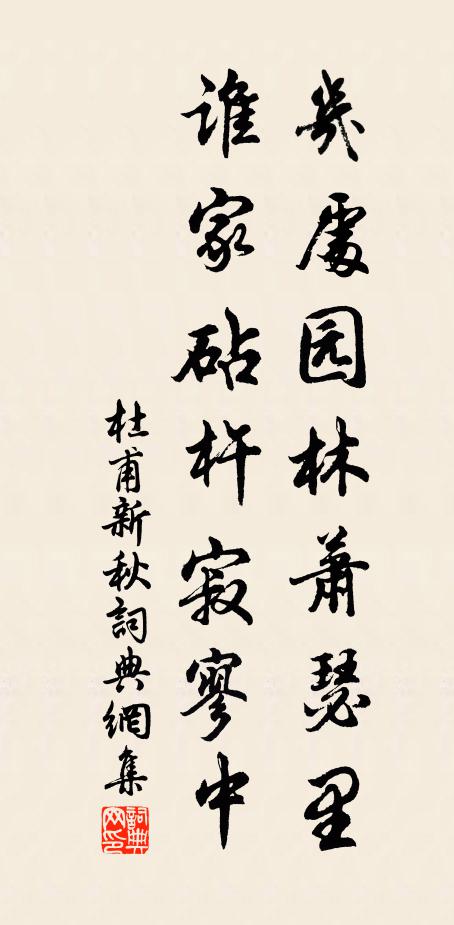 幾處园林萧瑟里
谁家砧杵寂寥中
杜甫新秋詞典網集
詞典网印